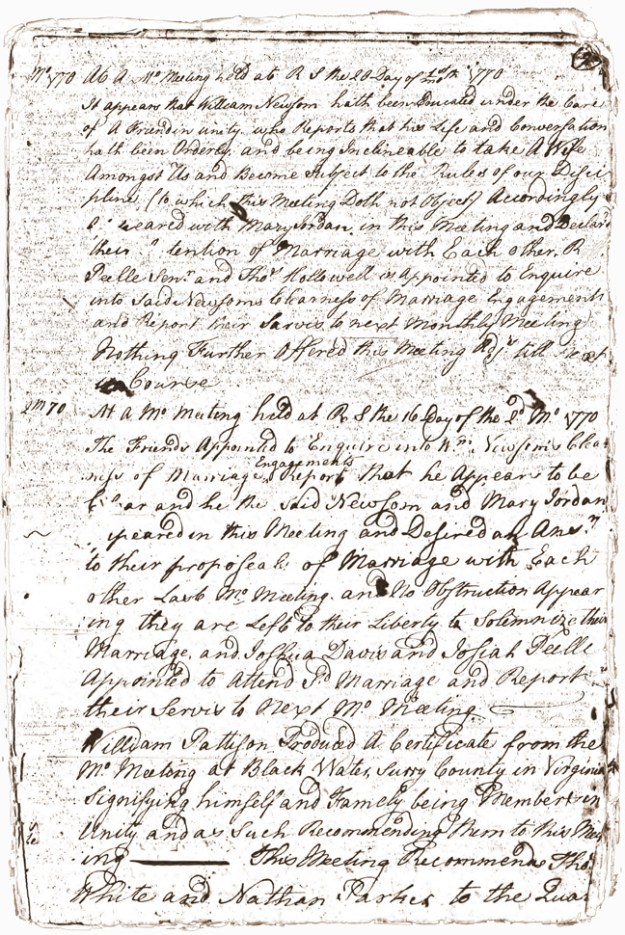 At A Mo Meeting held at R S the 20 Day of 1770
It appears that William Newsom hath been Educated under the Care
of A Friend in unity who Reports that his Life and Conversation
hath been Orderly and being Inclineable to take A Wife
Amongst Us and Become subject to the Rules of our Disci
pline, (to which this Meeting Doth not Object) Accordingly
with Mary Jordan in this Meeting and Declar'd
their tention of Marriage with Each other. R
Peelle Senr and Thos Hollowell is Appointed to Enquire
into Said Newsoms Clearness of Marriage Engagements
and Report their Sarvis to next Monthly Meeting
Nothing Further Offered this Meeting Adjr till next
in Course
2m 70 At A Mo Meeting held at R S the 16 Day of the 2d Mo 1770
The Friends Appointed to Enquire into Wm Newsoms Clea
ness of Marriage Engagements Report that he Appears to be
ar and he the said Newsom and Mary Jordan
peared in this Meeting and Desired an Ansr
to their proposeals of Marriage with Each
other Last Mo Meeting. and No Obstruction Appear
ing they are Left to their Liberty to Solemnize their
Marriage, and Joshua Davis and Josiah Peelle
Appointed to Attend Sd Marriage and Report
their Servis to Next Mo Meeting
William Pattison Produced A Certificate from the
Mo Meeting at Black Water, Surry County in Virginia
Signifying himself and Famely being Members in
Unity and as Such Recommending them to this Meet
ing — This Meeting Recommends Tho
White and Nathan Parker to the Quar